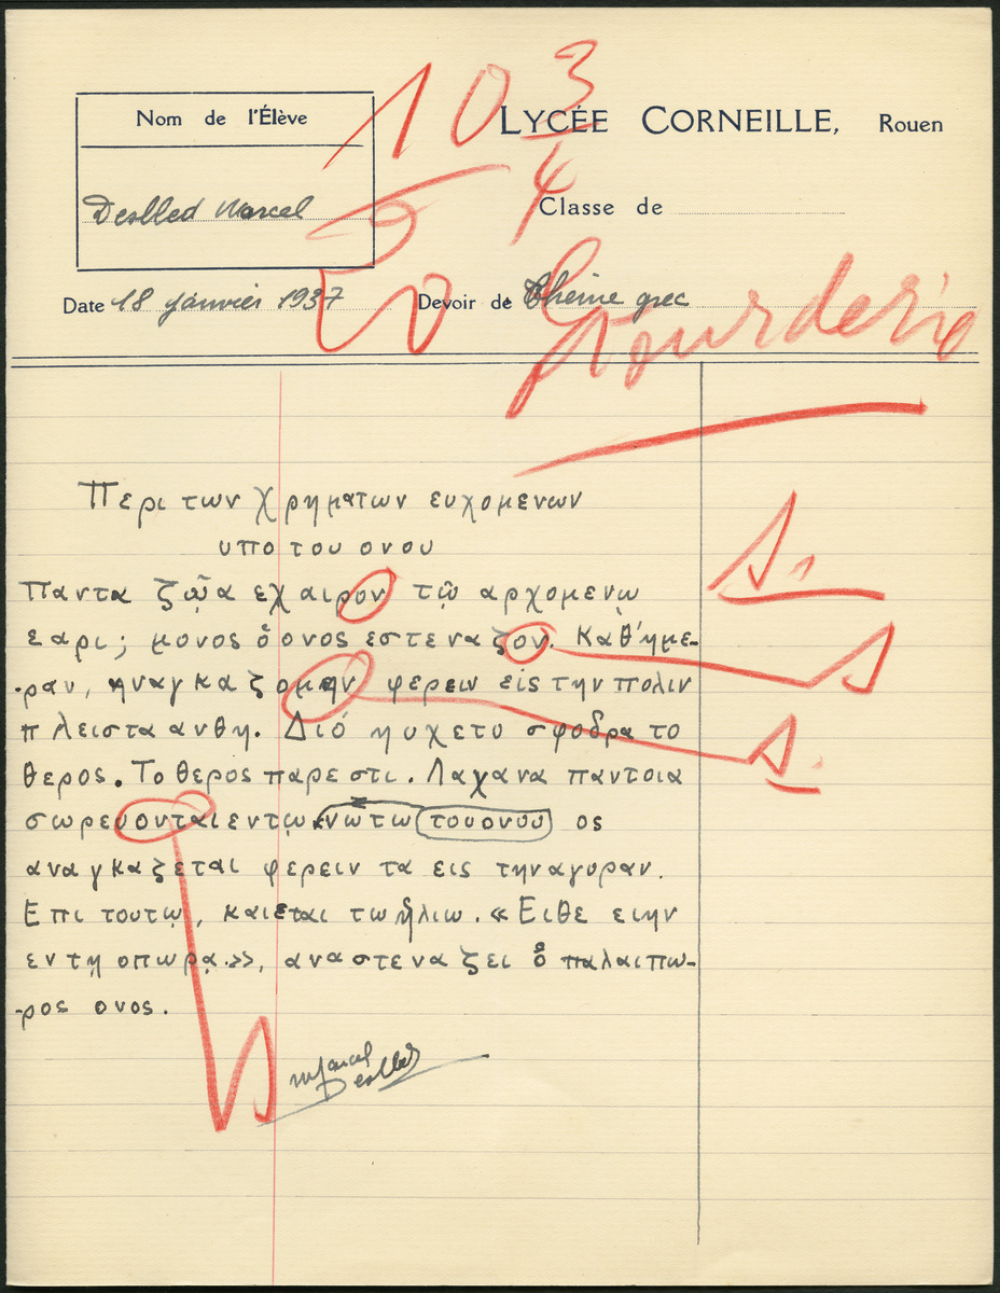 10 3/4
20
Nom de l'Élève
LYCÉE CORNEILLE, Rouen
Deslled Marcel
Classe de
Date 18 janvier 1937
Devoir de Thème grec
Περι των χρηματων ευχομενων
υπο του ονου
Παντα ζῷα εχαιρον τῷ αρχομενῳ
εαρι; μονος ὁ ονος εστεναζον. Καθ'ημε-
-ραν, ηναγκαζομην φερειν εἰς την πολιν
πλειστα ανθη. Διό ηυχετο σφοδρα το
θερος. Το θερος παρεστι. Λαχανα παντοια
σωρευονται εν τῳ νωτω του ονου ος
αναγκαζεται φερειν τα εις την αγοραν.
Επι τουτῳ, καιεται τω ἡλιω. « Ειθε ειην
εν τῃ οπωρᾳ.>>, αναστεναζει ὁ παλαιπω-
-ρος ονος.
Marcel